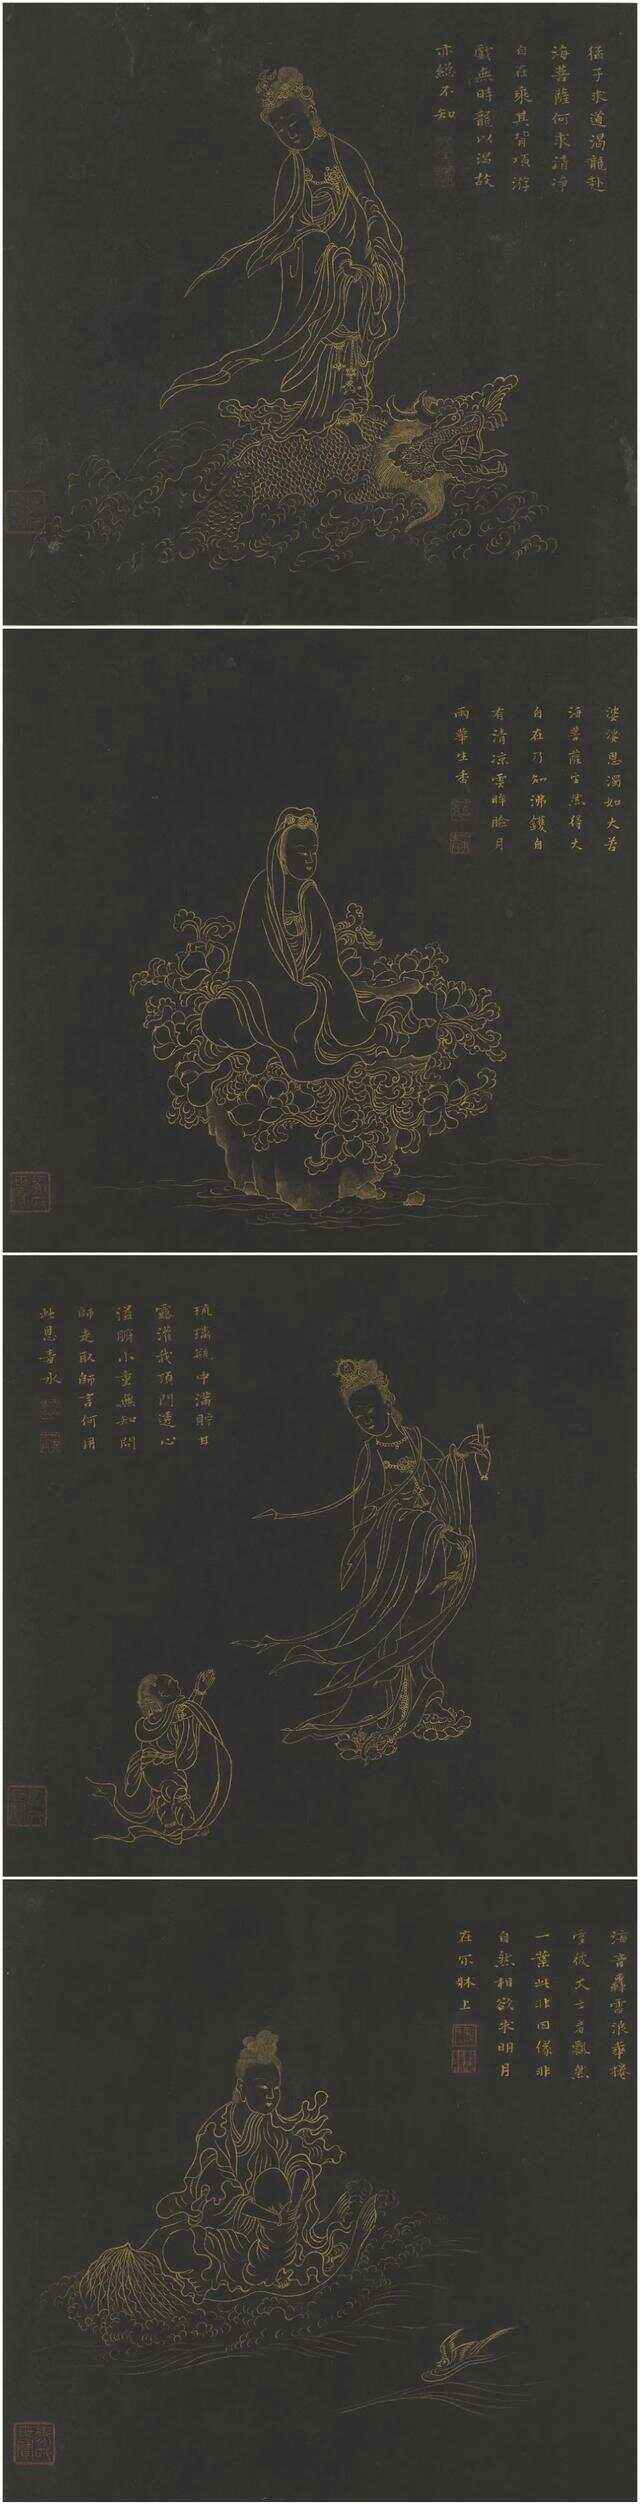 猛子求道渴龍赴
海菩薩何求清淨
自在乘其背項游
戲無時龍以渴故
亦總不知
婆娑恩濁如大苦
海菩薩宴然得大
自在乃知沸鑊自
有清凉雲眸臉月
兩華生香
琉璃瓶中滿貯甘
露灌我頂門透心
溢腑小童無知問
師走取師言何用
此恩毒水
海音轟雪浪華捲
雪彼大士者飄然
一葉此非因緣非
自然相欲求明月
在不牀上